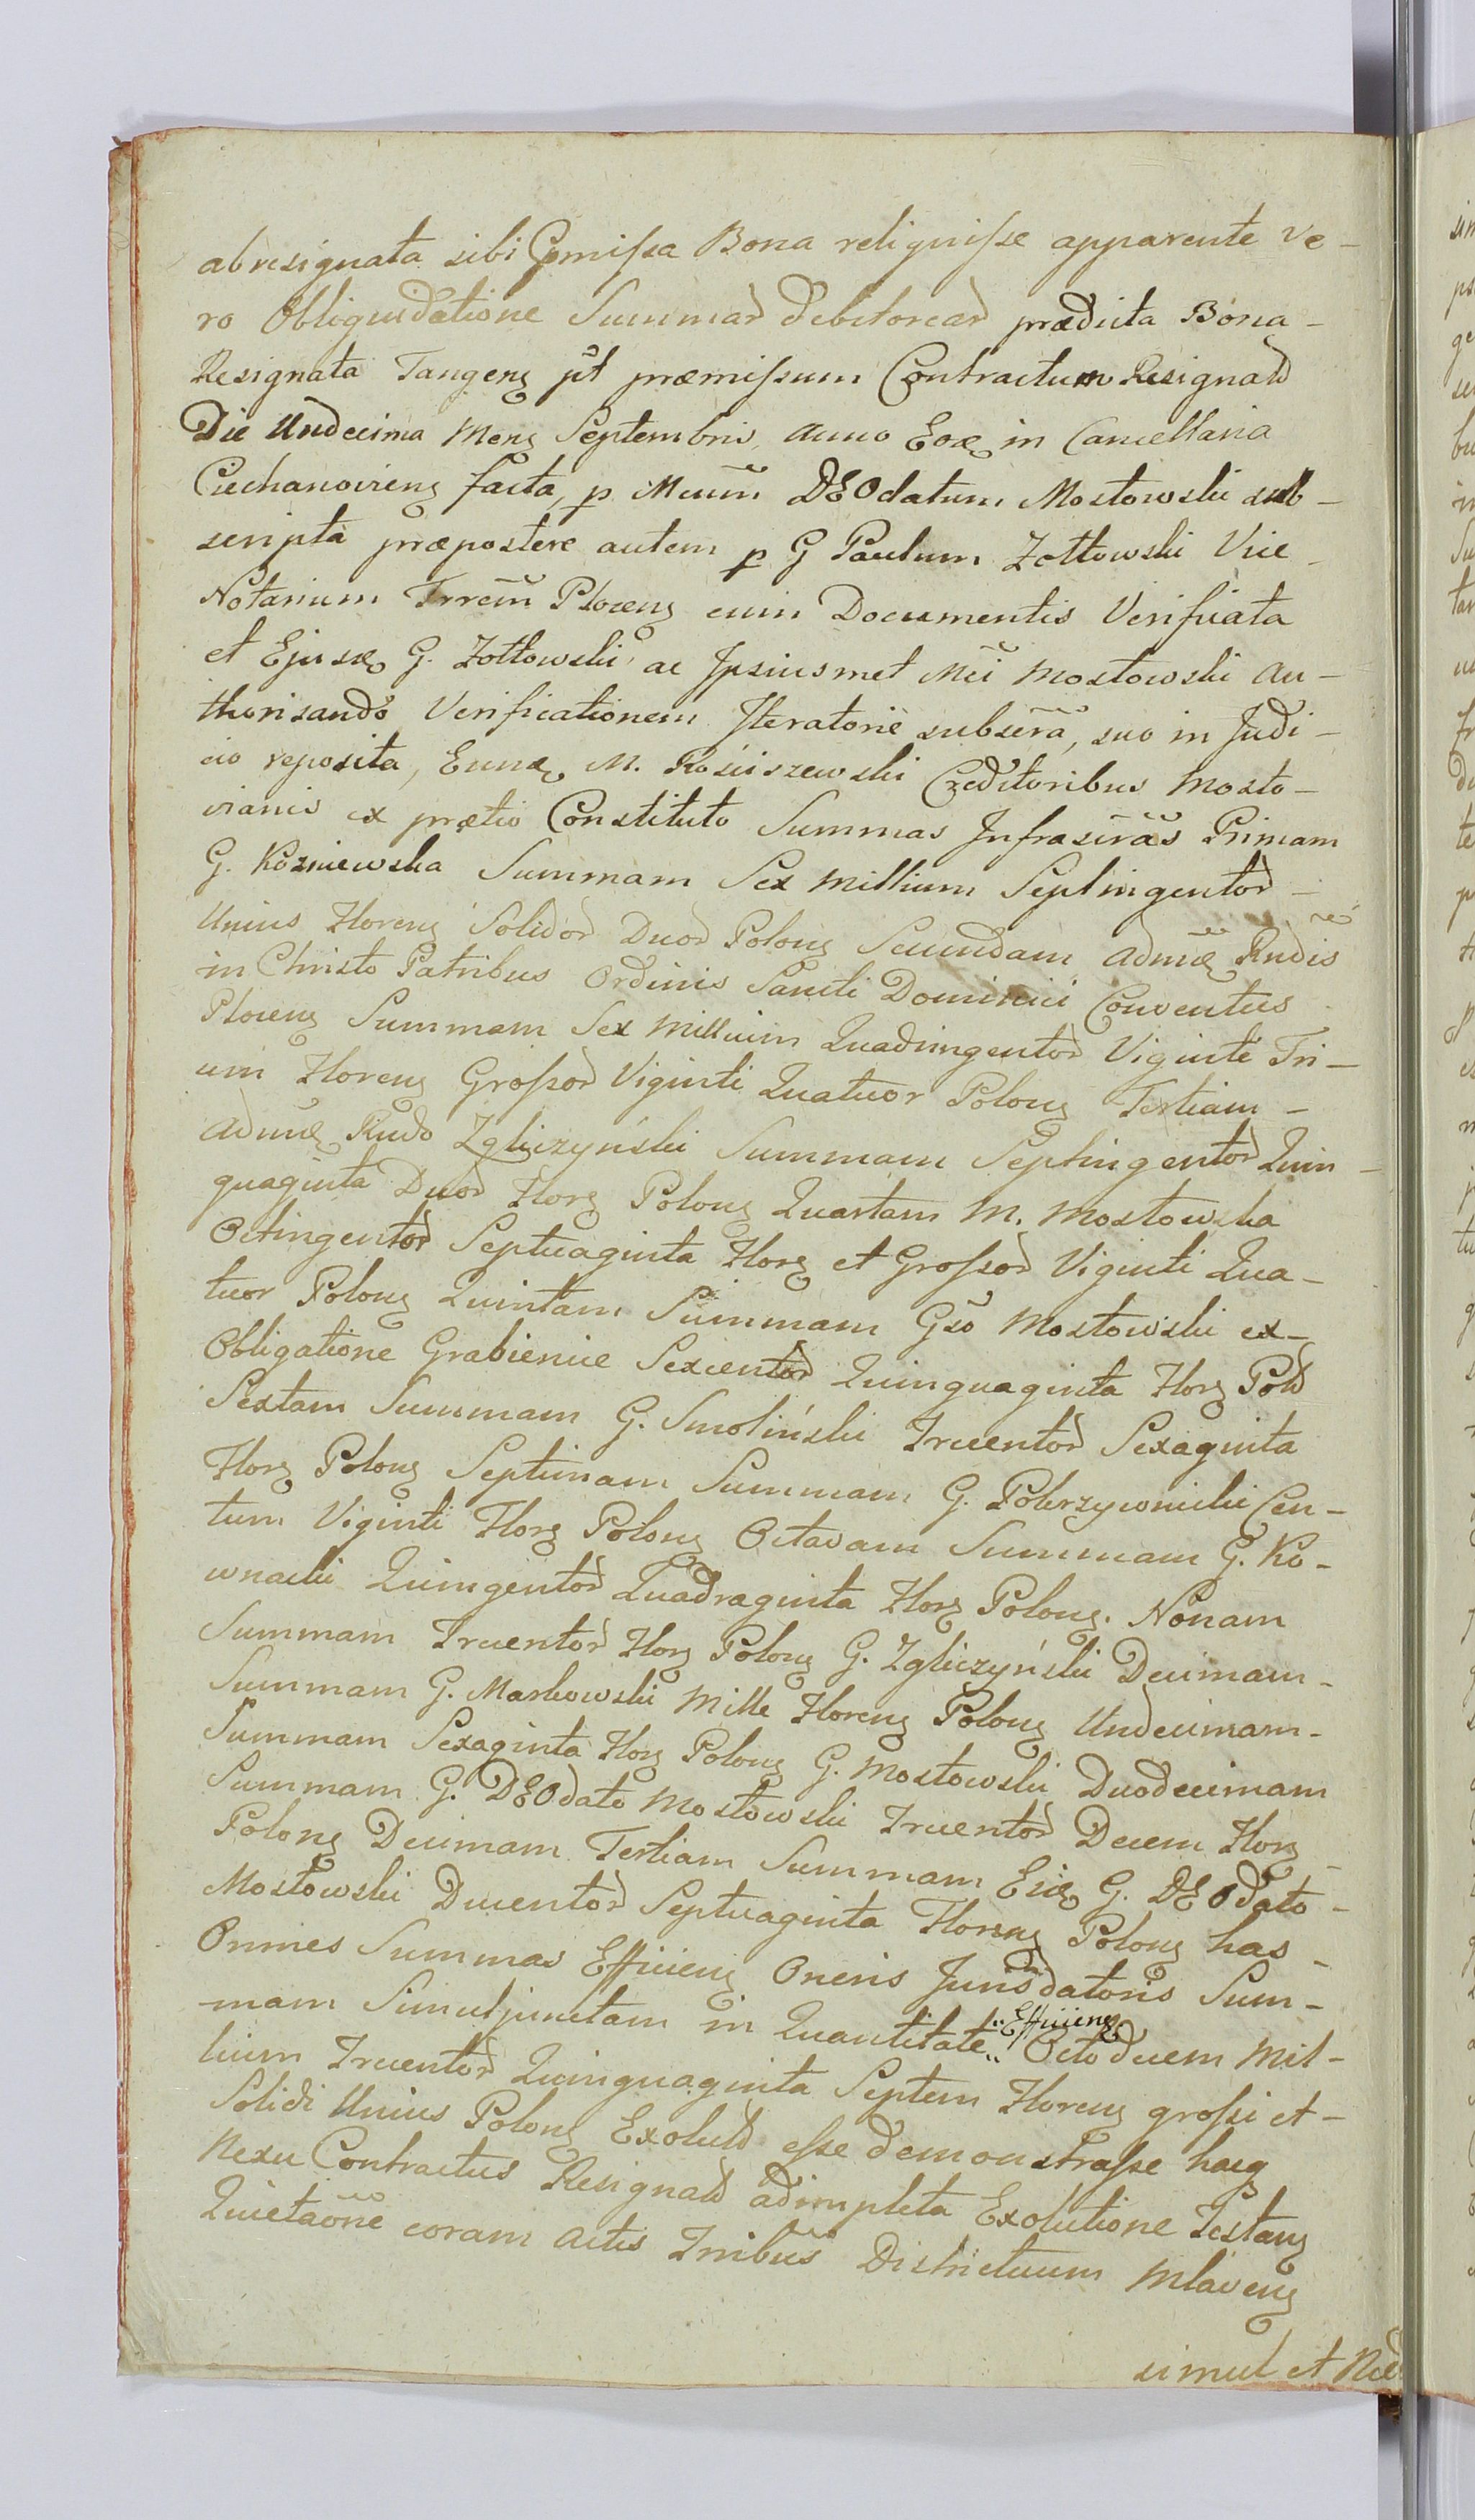 abresignata sibi Pmissa Bona reliquisse apparente Ve-
ro Obliquidatione Summar debitorear prædicta Bona-
Resignata Tangens ut præmissum Contractum Resignat
Die Undecima Mens Septembris anno Eoq in Cancellaria
Ciechanoviens facta, p Mcum DEOdatum Mostowski sub-
scripta præpostere autem p G Paulum Zottowski Vice
Notarium Trrem Plocens cum Documentis Verificata
et Ejusq G. Zottowski ac Ipsiusmet Mci Mostowski Au-
thorisando Verificationem Iteratorie subscra, suo in Judi-
cio reposita, Eunq M. Rościszewski Creditoribus Mosto-
vianis ex prætio Constituto Summas Infrascras Primam
G. Kozniewska Summam Sex Millium Septingentor-
Unius Florens Solidor Duor Polons Secundam Admq Rndis
in Christo Patribus Ordinis Sancti Dominici Conventus
Plocens Summam Sex Millium Quadringentor Viginti Tri-
um Florens Grossor Viginti Quatuor Polons Tertiam-
Admq Rndo Zgliczyński Summam Septingentor Quin-
quaginta Duor Flors Polons Quartam M. Mostowska
Octingentor Septuaginta Flors et Grossor Viginti Qua-
tuor Polons Quintam Summam Gso Mostowski ex-
Obligatione Grabienice Sexcentor Quinquaginta Flors Pol
Sextam Summam G. Smoliński Trecentor Sexaginta
Flors Polons Septimam Summam G. Pokrzywnicki Cen-
tum Viginti Flors Polons Octavam Summam G. Ko-
wnacki Quingentor Quadraginta Flors Polons. Nonam
Summam Trecentor Flors Polons G. Zgliczyński Decimam-
Summam G. Markowski Mille Florens Polons Undecimam-
Summam Sexaginta Flors Polons G. Mostowski Duodecimam
Summam G. DEOdato Mostowski Trecentor Decem Flors-
Polons Decimam Tertiam Summam Eidq G. DEOdato-
Mostowski Ducentor Septuaginta Florens Polons has-
Omnes Summas Efficiens Oneris Jurisdatoris Sum-
mam Simuljunctam in Quantitate Efficiens Octodecem Mil-
lium Trecentor Quinquaginta Septem Florens grossi et-
Solidi Unius Polons Exolut esse demonstrasse hacq
Nexu Contractus Resignat adimpleta Exolutione Testans
Quietaone coram Actis Tribus Districtuum Mlavens
simul et